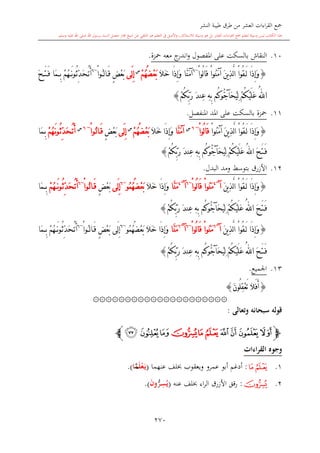 جمع القراءات العشر من طرق طيبة النشر
١٠. النقاش بالسكت على المفصول واندرج معه حمزة.
﴿ وَإِذَا لَقُوا الَّذِينَ آمَنُوا قَالُوا آمَنَّا وَإِذَا خَلَا بَعْضُهُمْ إِلَى بَعْضٍ قَالُوا أَتُحَدِّثُونَهُمْ بِمَا فَتَحَ
اللهُ عَلَيْكُمْ لِيُحَاجُّوكُمْ بِهِ عِندَ رَبِّكُمْ ﴾
١١. حمزة بالسكت على المد المنفصل.
﴿ وَإِذَا لَقُوا الَّذِينَ آمَنُوا قَالُوا آمَنَّا وَإِذَا خَلَا بَعْضُهُمْ إِلَى بَعْضٍ قَالُوا أَتُحَدِّثُونَهُمْ بِمَا
فَتَحَ اللهُ عَلَيْكُمْ لِيُحَاجُّوكُمْ بِهِ عِندَ رَبِّكُمْ ﴾
١٢. الأزرق بتوسط ومد البدل.
﴿ وَإِذَا لَقُوا الَّذِينَ آمَنُوا قَالُوا آمَنَّا وَإِذَا خَلَا بَعْضُهُمُ إِلَى بَعْضٍ قَالُوا أَتُحَدِّثُونَهُمْ بِمَا
فَتَحَ اللهُ عَلَيْكُمْ لِيُحَاجُّوكُمْ بِهِ عِندَ رَبِّكُمْ ﴾
١٣. الجميع.
﴿ أَفَلَا تَعْقِلُونَ ﴾
قوله سبحانه وتعالى :
﴿ أَوَلَا يَعْلَمُونَ أَنَّ ٱللَّهَ يَعْلَمُ مَا يُسِرُّونَ وَمَا يُعْلِنُونَ ٧٧ ﴾
وجوه القراءات
١. يَعْلَمُ مَا : أدغم أبو عمرو ويعقوب بخلف عنهما (يَعْلَمَّا).
٢. يُسِرُّونَ : رقق الأزرق الراء بخلف عنه (يُسِرُّونَ).
٢٧٠